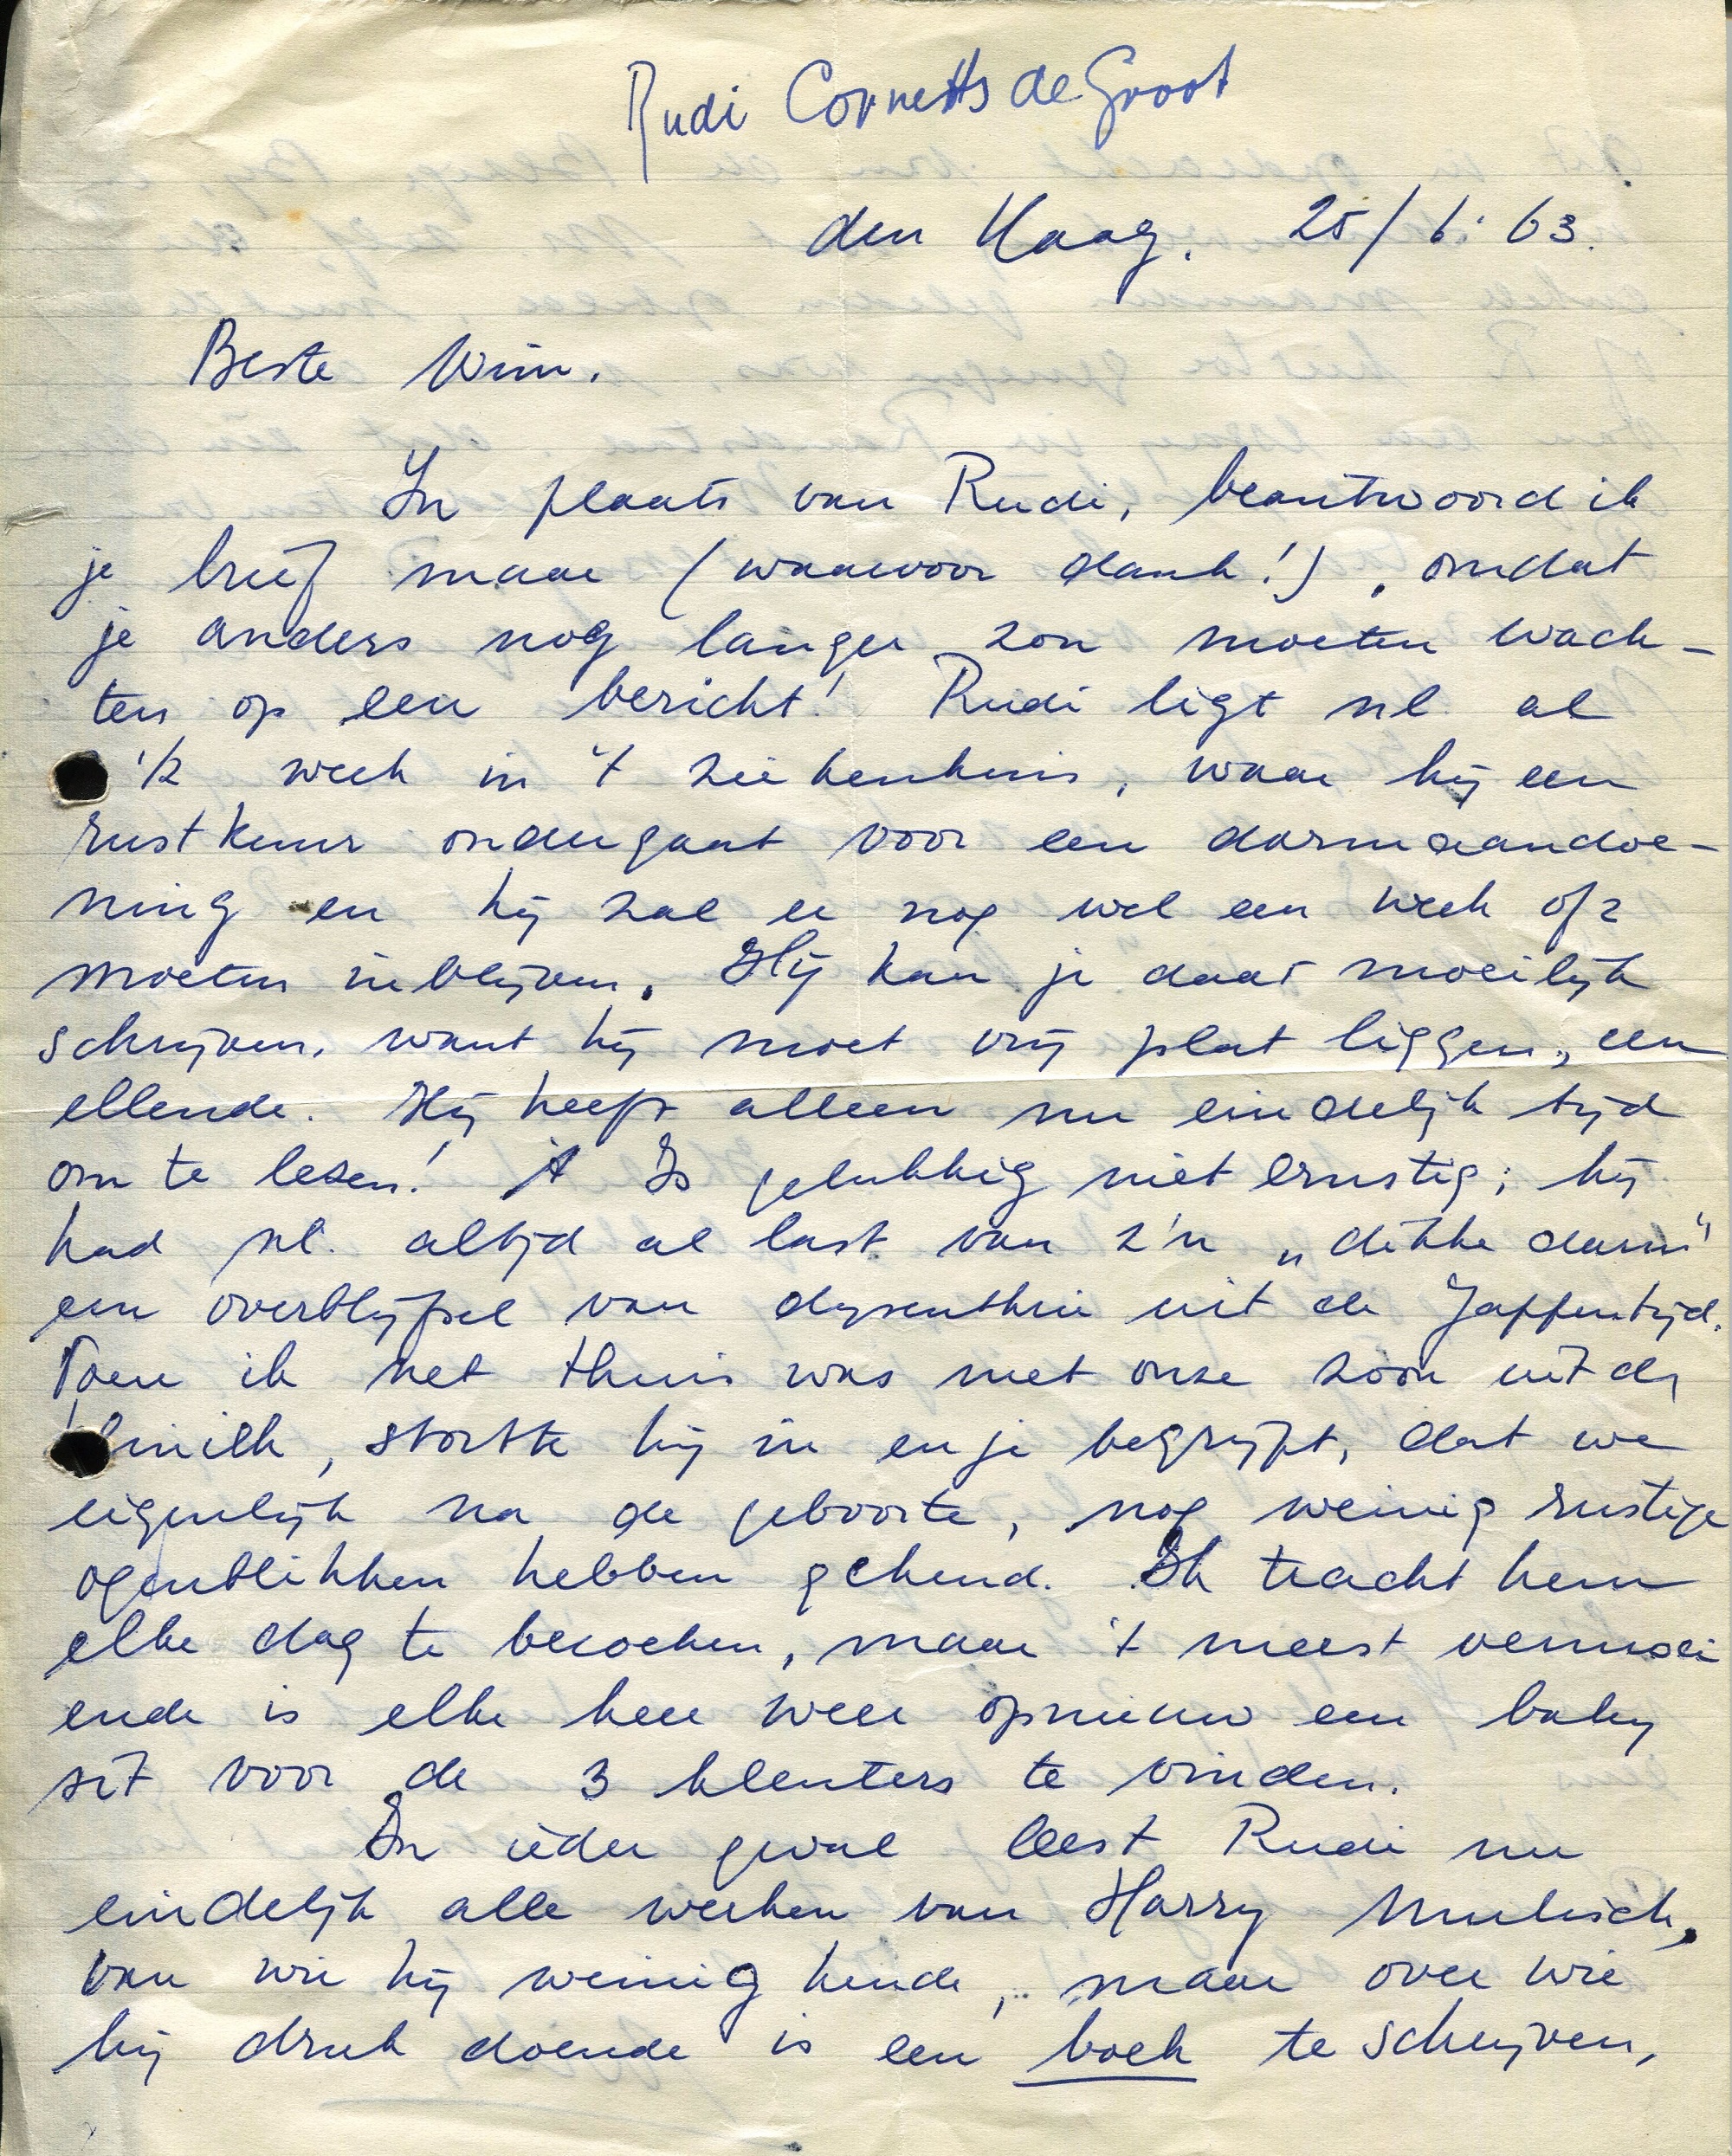 Rudi Cornets de Groot
den Haag. 25/6. 63.
Beste Wim.
In plaats van Rudi, beantwoord ik
je brief maar (waarvoor dank!), omdat
je anders nog langer zou moeten wach-
ten op een bericht! Rudi ligt nl. al
1/2 week in 't ziekenhuis, waar hij een
rustkuur ondergaat voor een darmaandoe-
ning en hij zal er nog wel een week of 2
moeten inblijven. Hij kan je daar moeilijk
schrijven, want hij moet vrij plat liggen, een
ellende. Hij heeft alleen nu eindelijk tijd
om te lezen! 't Is gelukkig niet ernstig; hij
had nl. altijd al last van z'n „dikke darm"
een overblijfsel van dysenthrie uit de Jappentijd.
Toen ik net thuis was met onze zoon uit de
kliniek, stortte hij in en je begrijpt, dat we
eigenlijk na de geboorte, nog weinig rustige
ogenblikken hebben gekend. Ik tracht hem
elke dag te bezoeken, maar 't meest vermoei
ende is elke keer weer opnieuw een baby
sit voor de 3 kleuters te vinden.
In ieder geval leest Rudi nu
eindelijk alle werken van Harry Mulisch,
van wie hij weinig kende, maar over wie
hij druk doende is een boek te schrijven,